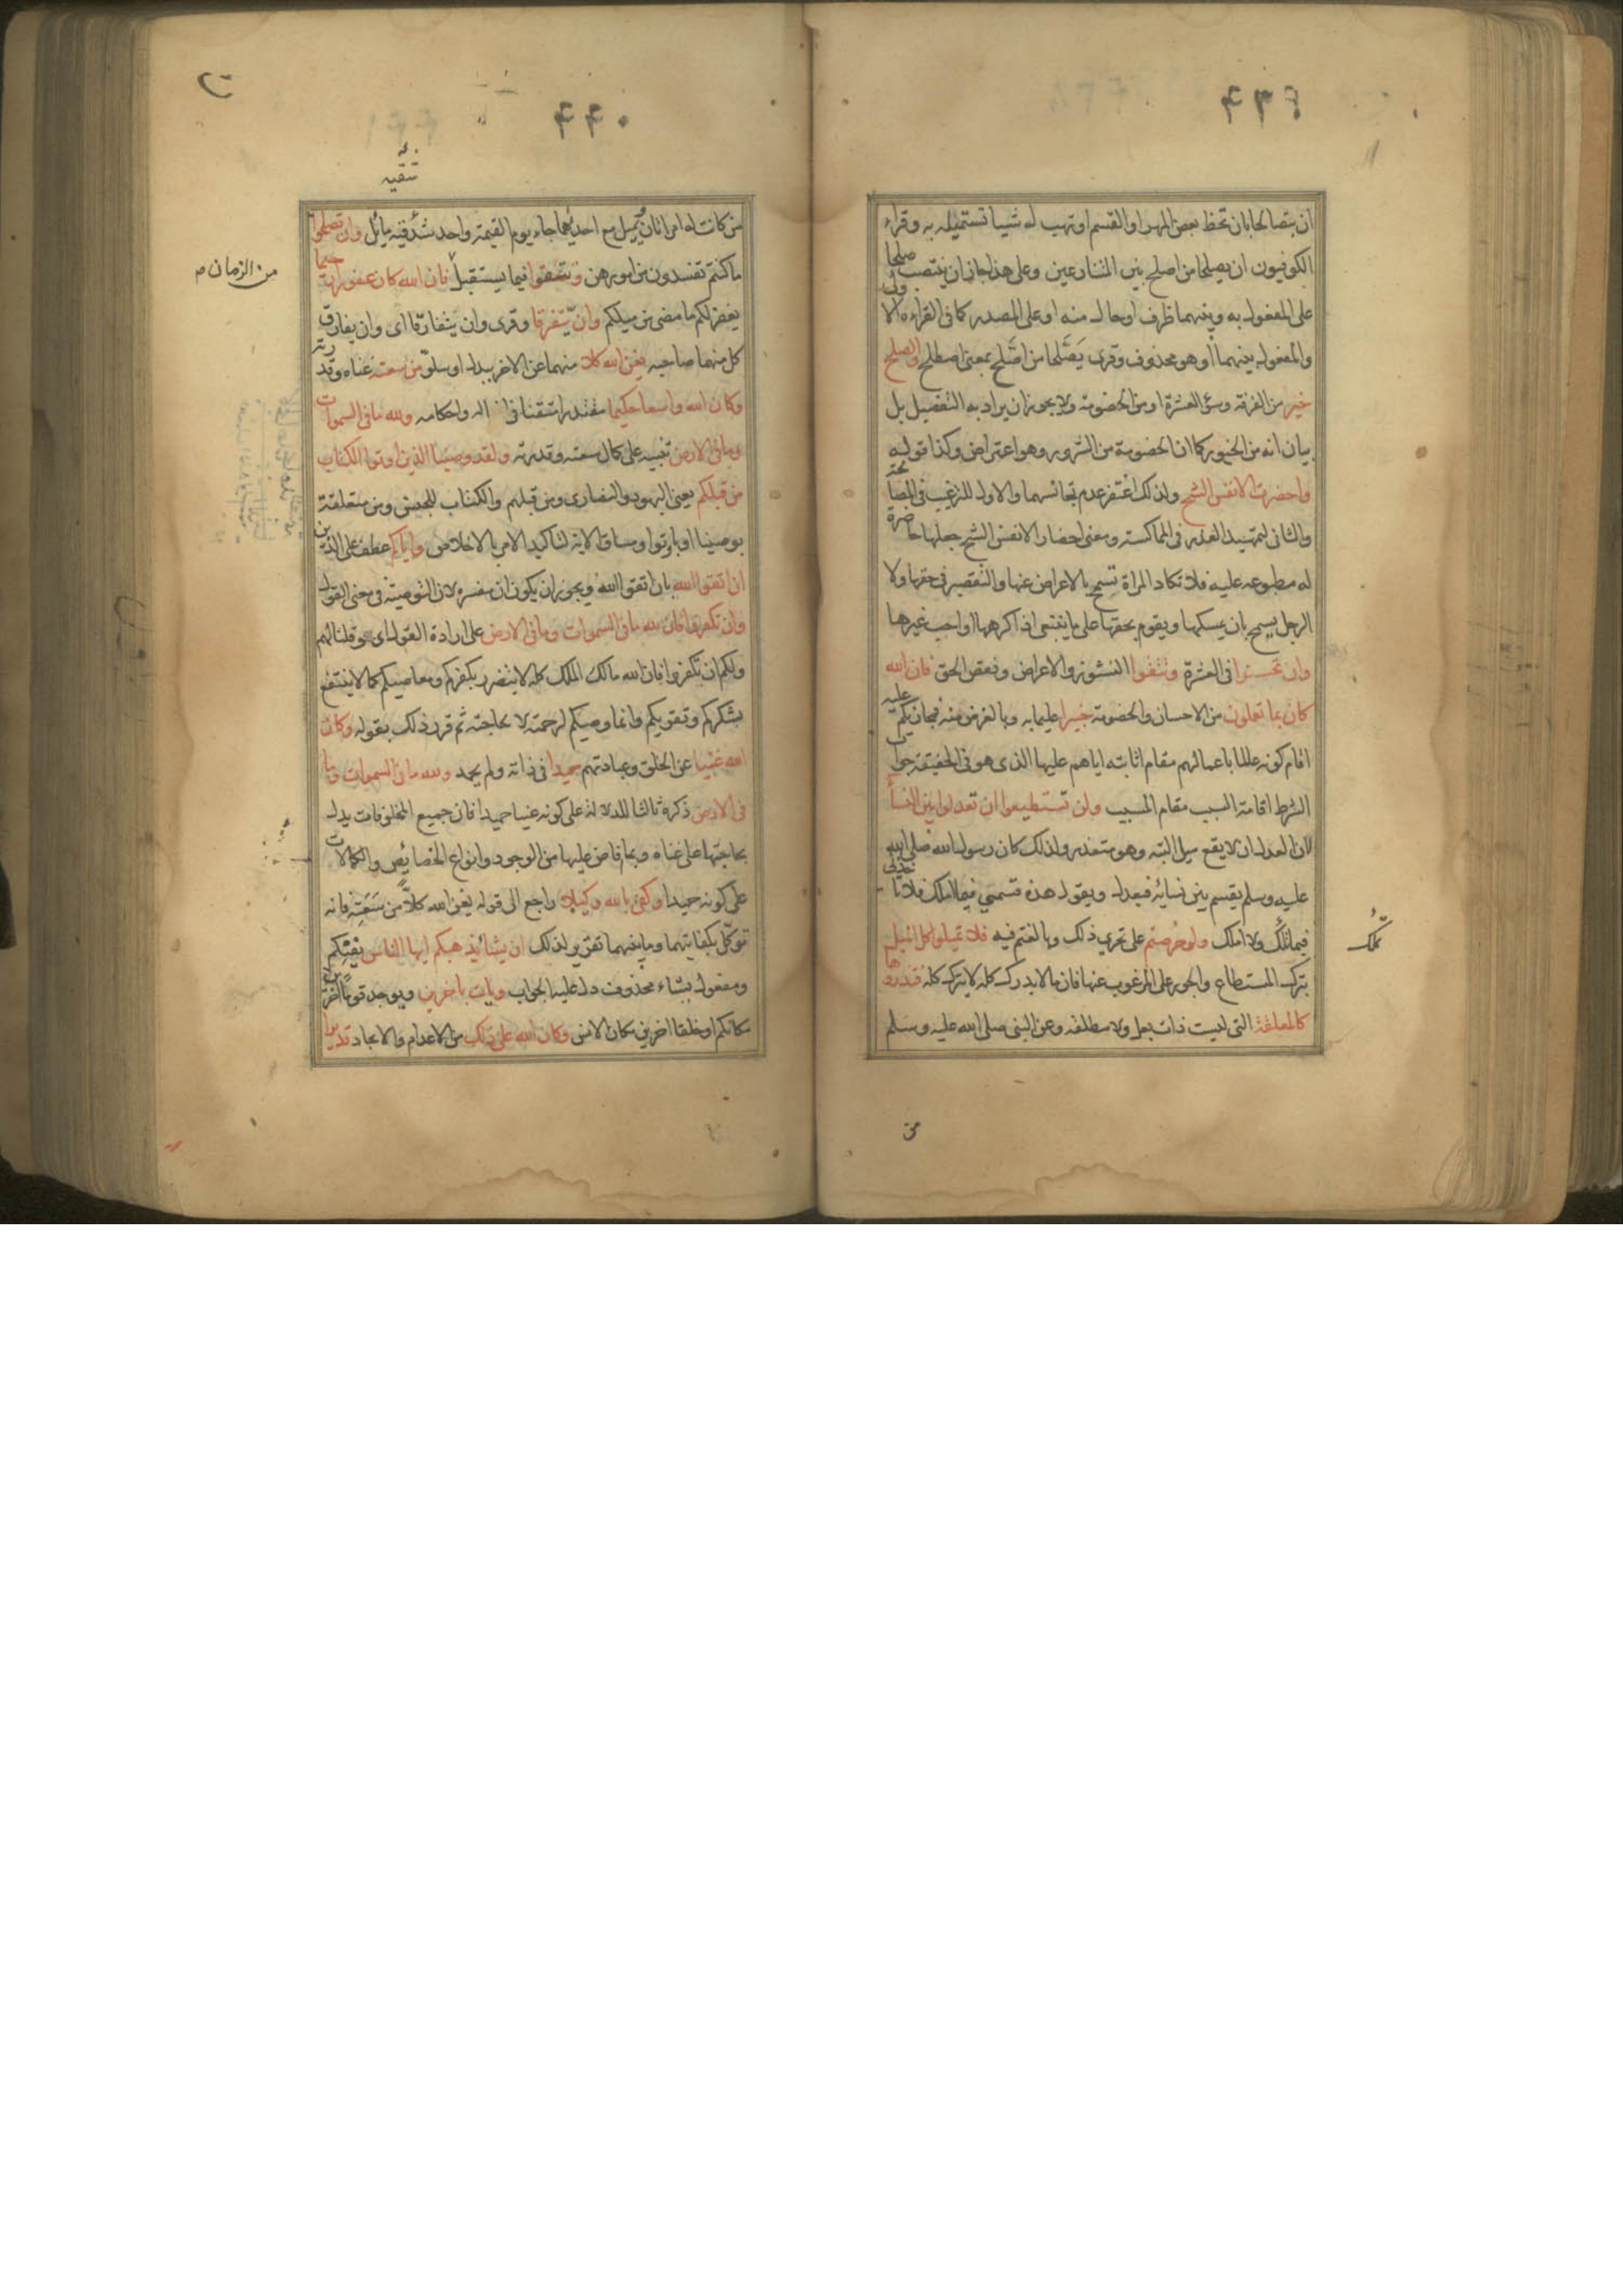 ان يتصالحا بان تحط بعض المهر او القسم او تهب له شيئا تستميله به وقراء
الكوفيون ان يصلحا من اصلح بين المتنازعين وعلى هذا جاز ان ينتصب صلحا
على المفعول به وبينهما ظرف او حال منه او على المصدر كما في القراءة الاولى
والمفعول بينهما او هو محذوف وقرئ يَصَّلحا من اصّلح بمعنى اصطلح والصلح
خير من الفرقة وسوء العشرة او من الخصومة ولا يجوز ان يراد به التفضيل بل
بيان انه من الخيور كما ان الخصومة من الشرور وهو اعتراض وكذا قوله
واحضرت الانفس الشح ولذلك اغتفر عدم تجانسهما والاول للترغيب في المصالحة
والثاني لتمهيد العذر في المماكسة ومعنى احضار الانفس الشح جعلها حاضرة
له مطبوعه عليه فلا تكاد المراة تسمح بالاعراض عنها والتقصير في حقها ولا
الرجل يسمح بان يمسكها ويقوم بحقها على ما ينبغي اذا كرهها او احب غيرها
وان تحسنوا في العشرة وتتقوا النشوز والاعراض ونقص الحق فان الله
كان بما تعملون من الاحسان والخصومة خبيرا عليما به وبالغرض منه فيجازيكم عليه
اقام كونه عالما باعمالهم مقام اثابته اياهم عليها الذي هو في الحقيقة جواب
الشرط اقامة السبب مقام المسبب ولن تستطيعوا ان تعدلوا بين النسأ
لان العدل ان لا يقع ميل البته وهو متعذر ولذلك كان رسول الله صلى الله
عليه وسلم يقسم بين نسائه فيعدل ويقول هذه قسمتي فيما املك فلا تاخذني
فيما تملك ولا املك ولو حرصتم على تحري ذلك وبالغتم فيه فلا تميلوا كل الميل
تملك
بترك المستطاع والجور على المرغوب عنها فان ما لا يدرك كله لا يترك كله فتذروها
كالمعلقة التي ليست ذات بعل ولا مطلقة وعن النبي صلى الله عليه وسلم
من
٢٢٠
من كانت له امراتان يميل مع احديهما جاء يوم القيمة واحد شقيه مايل وان تصلحوا
ما كنتم تفسدون من امورهن وتتقوا فيما يستقبل فان الله كان غفورا رحيما
من الزمان م
يغفر لكم ما مضى من ميلكم وان يتفرقا وقرئ وان يتفارقا اى وان يفارق
كل منهما صاحبه يغن الله كلا منهما عن الاخر ببدل او سلوّ من سعته غناه وقدرته
وكان الله واسعا حكيما مقتدرا متقنا في افعاله واحكامه ولله ما في السموات
وما في الارض تنبيه على كمال سعته وقدرته ولقد وصينا الذين اوتوا الكتاب
من قبلكم يعني اليهود والنصارى ومن قبلهم والكتاب للجنس ومن متعلقة
بوصينا او باوتوا ومساق الاية لتاكيد الامر بالاخلاص واياكم عطف على الذين
ان اتقوا الله بان اتقوا الله ويجوز ان يكون ان مفسرة لان التوصية في معنى القول
وان تكفروا فان لله ما في السموات وما في الارض على ارادة القول اى وقلنا لهم
ولكم ان تكفروا فان الله مالك الملك كله لا يتضرر بكفركم ومعاصيكم كما لا ينتفع
بشكركم وتقويكم وانما وصيكم لرحمته لا لحاجته ثم قرر ذلك بقوله وكان
الله غنيا عن الخلق وعبادتهم حميدا في ذاته ولم يحمد ولله ما في السموات وما
في الارض ذكره ثالثا للدلالة على كونه غنيا حميدا فان جميع المخلوقات يدل
بحاجتها على غناه وبما فاض عليها من الوجود وانواع الخصائص والكمالات
على كونه حميدا وكفى بالله وكيلا راجع الى قوله يغن الله كلاًّ من سَعَتِهِ فانه
توكّل بكفايتهما وما بينهما تقرير لذلك ان يشأ يذهبكم ايها الناس يفنيكم
ومفعول يشاء محذوف دل عليه الجواب ويات باخرين ويوجد قوماً اخرين
مكانكم او خلقا اخرين مكان الانس وكان الله على ذلك من الاعدام والايجاد قديرا